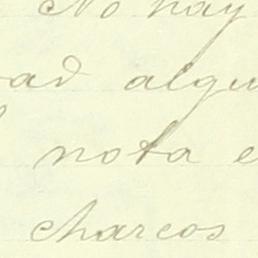 No hay
ad algu
nota e
charcos